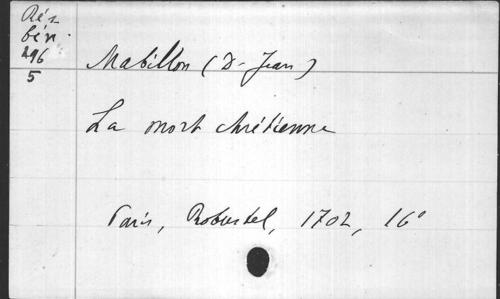 Rés
bén.
296
5
Mabillon (D. Jean)
La mort chrétienne
Paris, Robustel, 1702, 16°